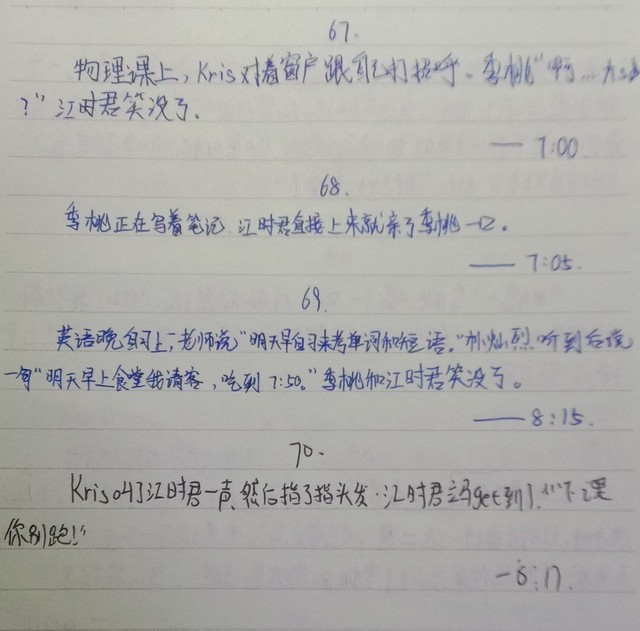 67.
物理课上，Kris对着窗户跟自己打招呼。李桃“啊…
？”江时君笑没了。
—— 7:00
68.
李桃正在写着笔记，江时君直接上来就亲了李桃一口。
—— 7:05.
69.
英语晚自习上，老师说“明天早自习来考单词和短语。”朴灿烈听到后说
一句“明天早上食堂我请客，吃到7:50。”李桃和江时君笑没了。
—— 8:15.
70.
Kris叫了江时君一声，然后指了指头发。江时君立马get到了，“下课
你别跑！”
—8:17.